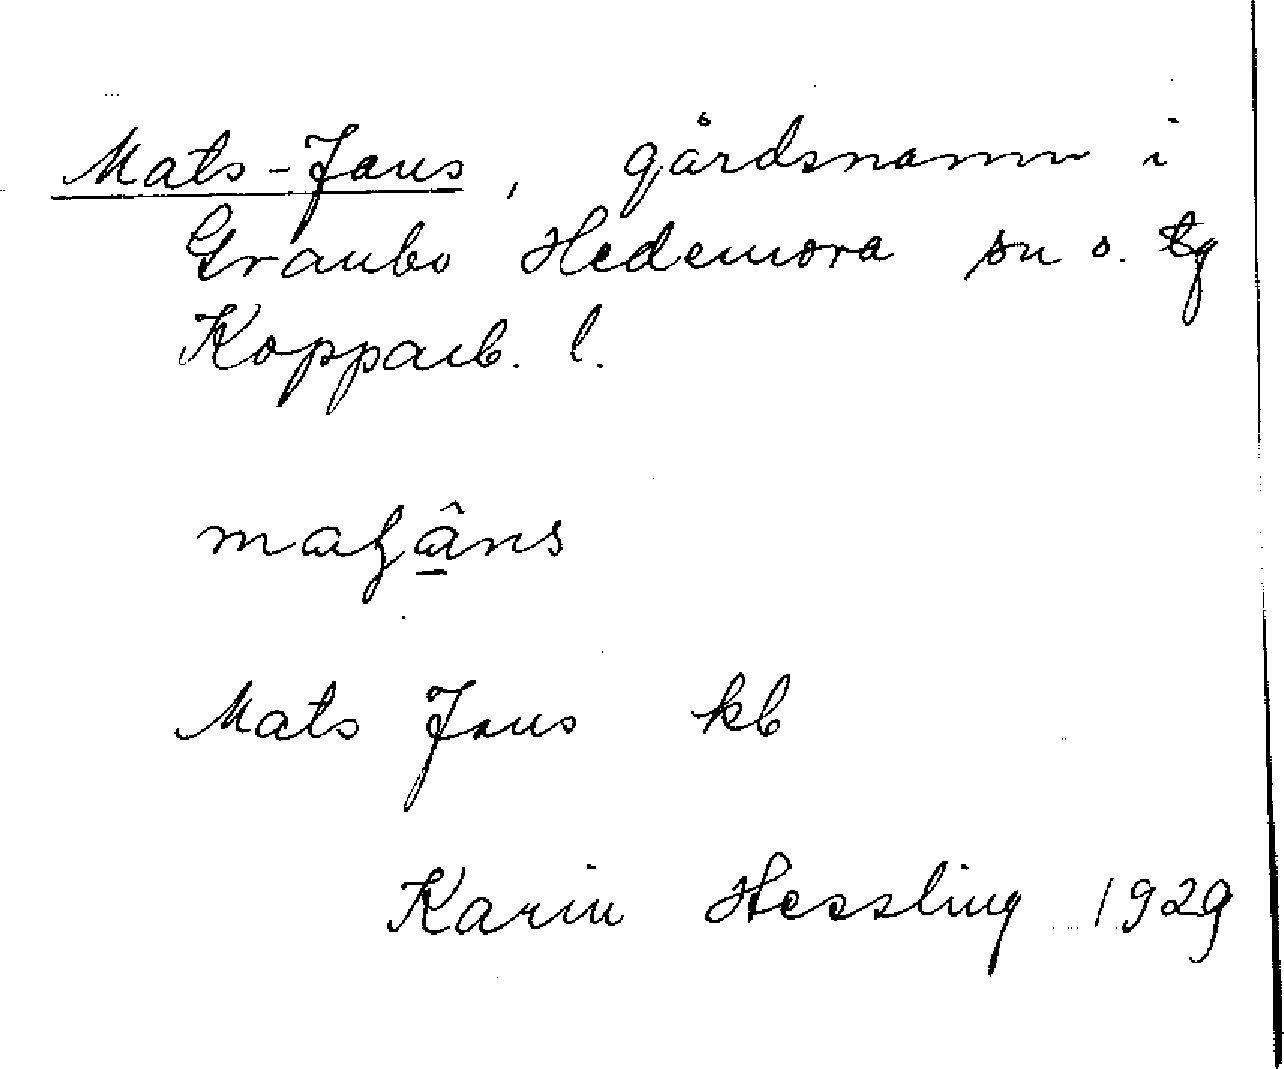 Mats-Jans, gårdsnamn i
Granbo Hedemora sn o. tg
Kopparb. l.
Mats Jans kb
Karin Hessling 1929